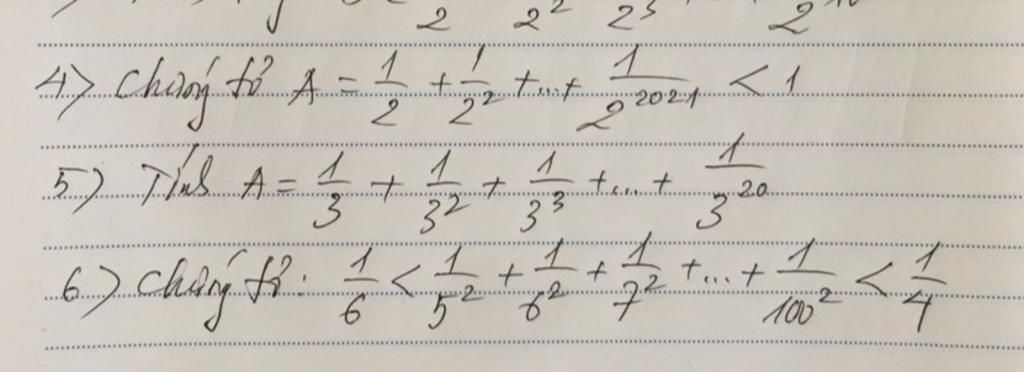 2 2² 2³
4) Chứng tỏ A = 1/2 + 1/2² + ... + 1/2²⁰²¹ < 1
5) Tính A = 1/3 + 1/3² + 1/3³ + ... + 1/3²⁰
6) Chứng tỏ: 1/6 < 1/5² + 1/6² + 1/7² + ... + 1/100² < 1/4